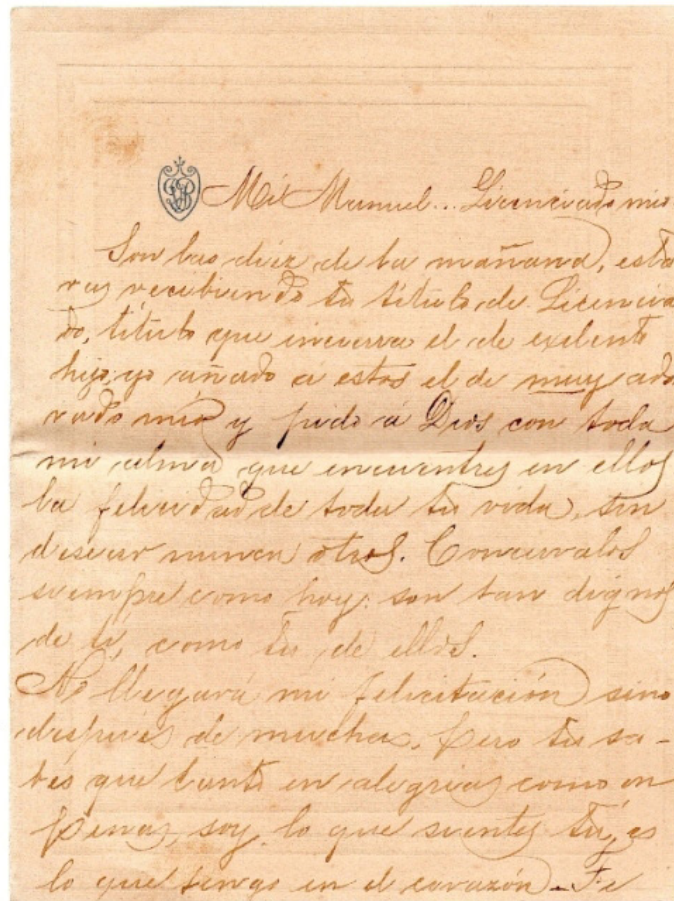 Mi Manuel... Licenciado mio
Son las diez de la mañana, esta
ras recibiendo tu título de Licencia
do, título que encierra el de exelente
hijo; yo añado a estos el de muy ado
rado mio y pido á Dios con toda
mi alma que encuentres en ellos
la felicidad de toda tu vida, sin
desear nunca otros. Concervalos
siempre como hoy: son tan dignos
de ti, como tu de ellos.
No llegará mi felicitación sino
después de muchas, pero tu sa-
bes que tanto en alegrias como en
penas, soy, lo que sientes tú, es
lo que tengo en el corazón. Fe